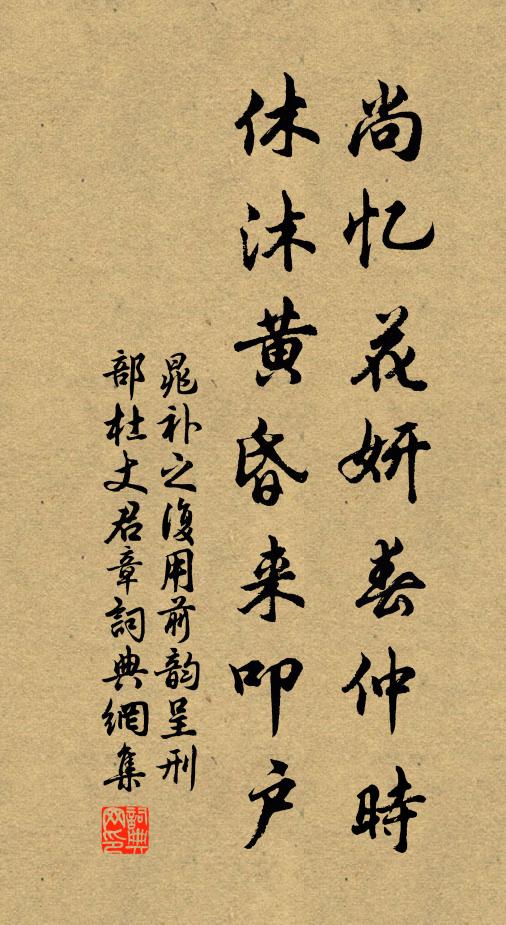 尚忆花妍春仲時
休沐黄昏来叩户
晁补之復用前韵呈刑
部杜丈君章詞典網集
詞典网印